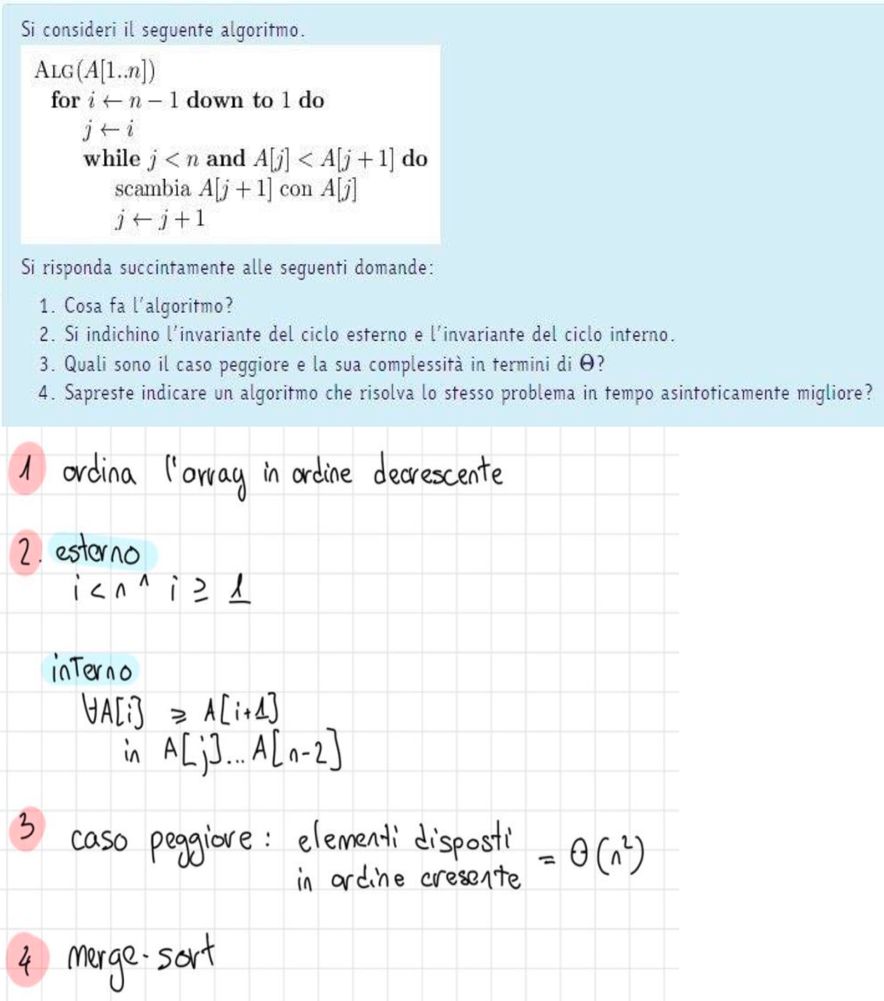 Si consideri il seguente algoritmo.
ALG(A[1..n])
for i ← n − 1 down to 1 do
j ← i
while j < n and A[j] < A[j + 1] do
scambia A[j + 1] con A[j]
j ← j + 1
Si risponda succintamente alle seguenti domande:
1. Cosa fa l'algoritmo?
2. Si indichino l'invariante del ciclo esterno e l'invariante del ciclo interno.
3. Quali sono il caso peggiore e la sua complessità in termini di Θ?
4. Sapreste indicare un algoritmo che risolva lo stesso problema in tempo asintoticamente migliore?
1 ordina l'array in ordine decrescente
2. esterno
i < n ^ i ≥ 1
interno
∀A[i] ≥ A[i+1]
in A[j]...A[n-2]
3 caso peggiore: elementi disposti
in ordine cresente = Θ(n²)
4 merge-sort